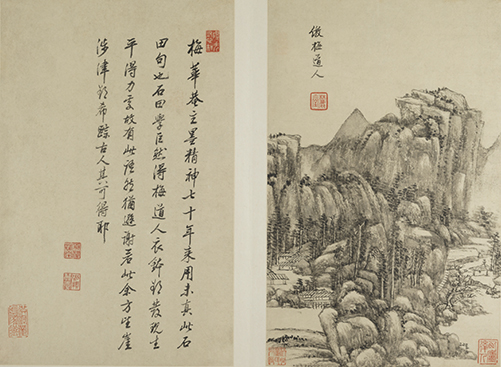 倣梅道人
梅華菴主墨精神七十年來用未真此石
田句也石田學巨然得梅道人衣鉢欲發現生
平得力處故有此語然猶遜謝若此余方望崖
涉津欲希踪古人其可得耶